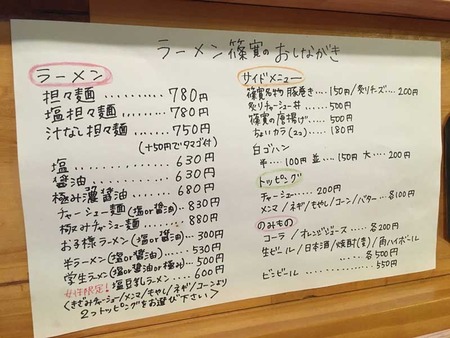 ラーメン篠寛のおしながき
ラーメン
担々麺 ..... 780円
塩担々麺 ..... 780円
汁なし担々麺 .... 750円
(+50円でタマゴ付)
塩 ........ 630円
醤油 ........ 630円
極み濃醤油 ...... 680円
チャーシュー麺(塩or醤油)... 830円
極みチャーシュー麺 ...... 880円
お子様ラーメン(塩or醤油).... 300円
半ラーメン(塩or醤油)..... 530円
学生ラーメン(塩or醤油or極み).. 500円
女性限定! 塩豆乳ラーメン .... 600円
<きざみチャーシュー/メンマ/もやし/ネギ/コーンより
2つトッピングをお選び下さい>
サイドメニュー
篠寛名物 豚巻き....150円/炙りチーズ....200円
炙りチャーシュー丼 ..... 500円
篠寛の唐揚げ..... 500円
ちょいカラ(2コ) .... 180円
白ゴハン
半...100円 並...150円 大...200円
トッピング
チャーシュー......200円
メンマ/ネギ/もやし/コーン/バター...各100円
のみもの
コーラ/オレンジジュース.....各200円
生ビール/日本酒/焼酎(麦)/角ハイボール
........各500円
ビンビール ........ 550円